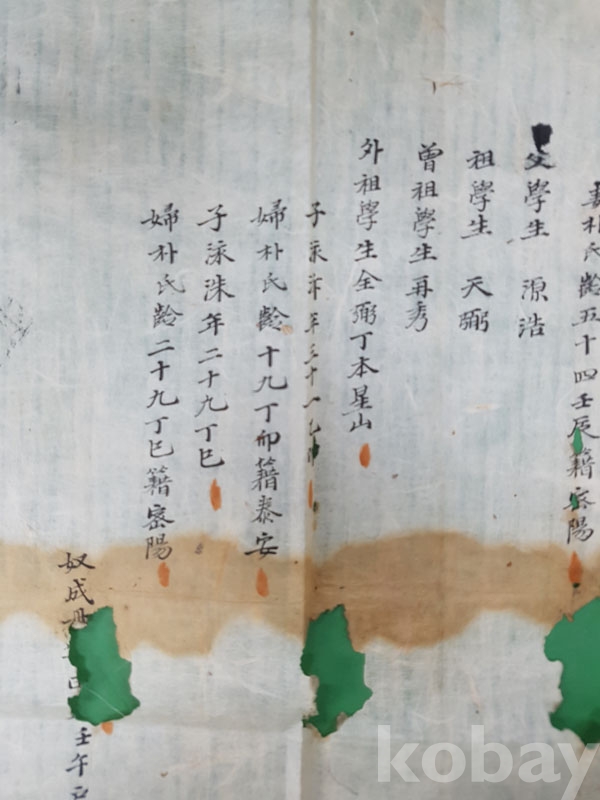 妻朴氏齡五十四壬辰籍密陽
父學生 源浩
祖學生 天弼
曾祖學生再秀
外祖學生全弼丁本星山
子 年三十一乙
婦朴氏齡十九丁卯籍泰安
子洙年二十九丁巳
婦朴氏齡二十九丁巳籍密陽
奴成 壬午
kobay